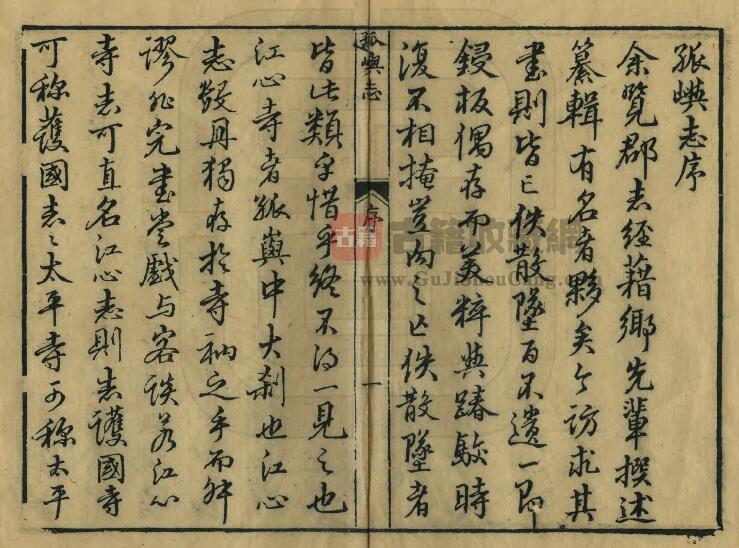 孤嶼志序
余覽郡志經籍鄉先輩撰述
纂輯有名者夥矣今訪求其
書則皆亡佚散墜百不遺一即
鋟板偶存而美粹與踳駁時
復不相掩豈向之亡佚散墜者
孤嶼志
序
一
皆此類乎惜乎終不得一見之也
江心寺者孤嶼中大刹也江心
志數冊獨存於寺衲之手而舛
謬非完書嘗戲與客談若江心
寺志可直名江心志則志護國寺
可称護國志志太平寺可称太平
古籍
古籍收藏網
www.GuJiShouCang.com